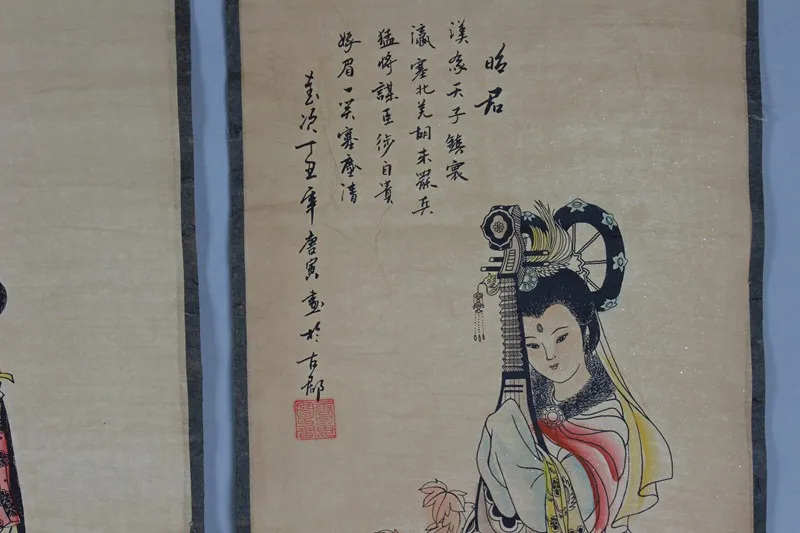 昭君
漢家天子鎮寰
瀛塞北羌胡未罷兵
猛將謀臣徒自貴
娥眉一笑塞塵清
歲次丁丑年唐寅畫於古都